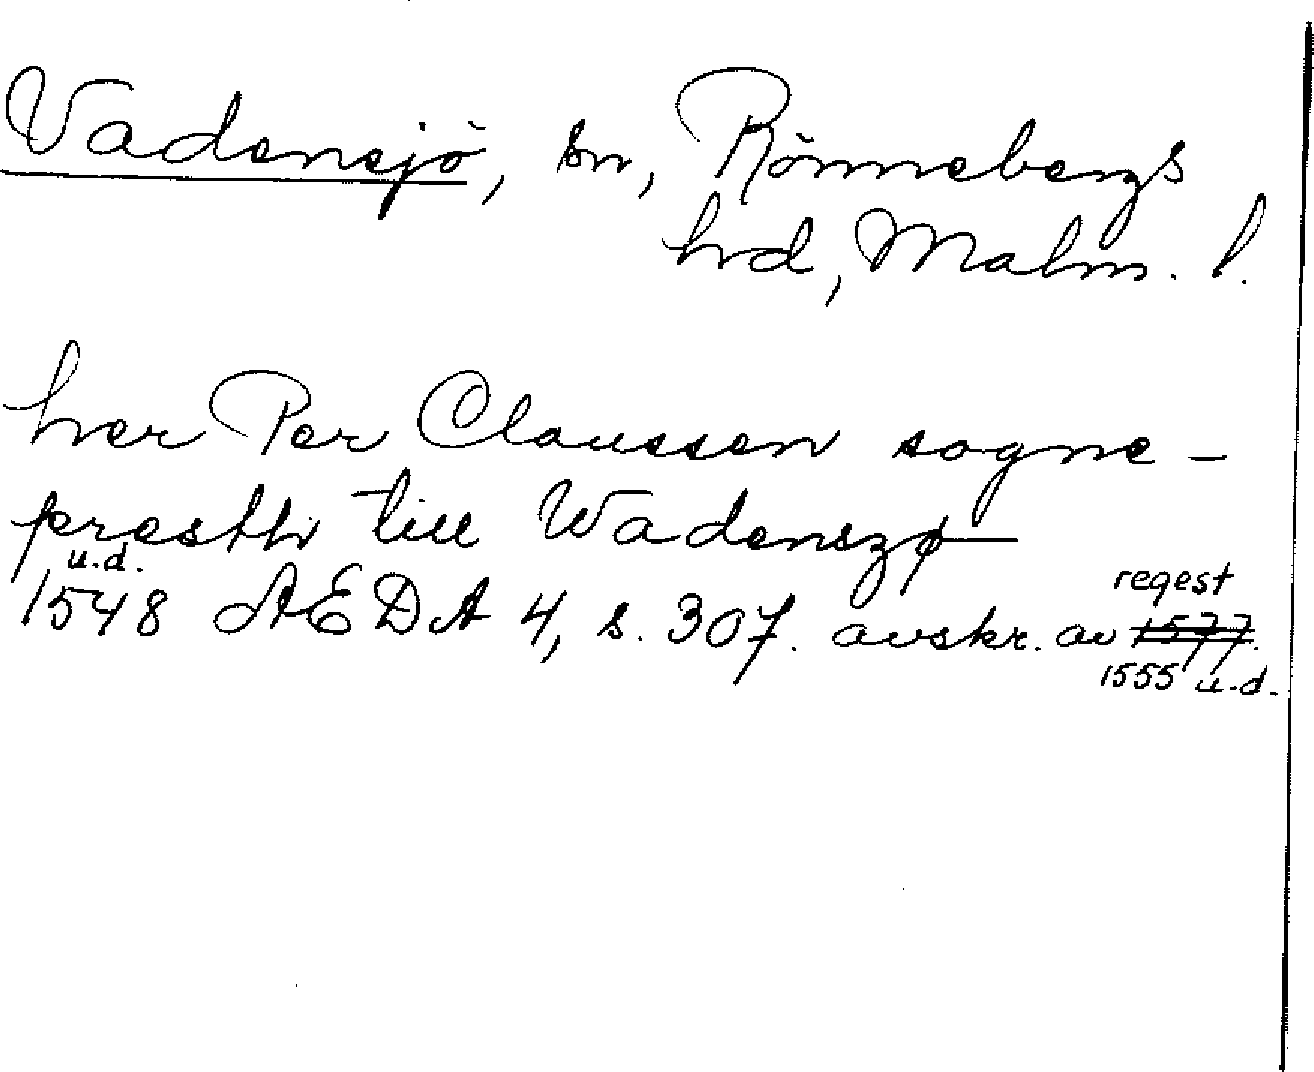 Vadensjö, sn, Rönnebergs
hrd, Malm. l.
her Per Claussen sogne-
presthr till Wadenszø—
u.d.
1548 AEDA 4, s. 307. avskr. av regest 1577.
1555 u.d.